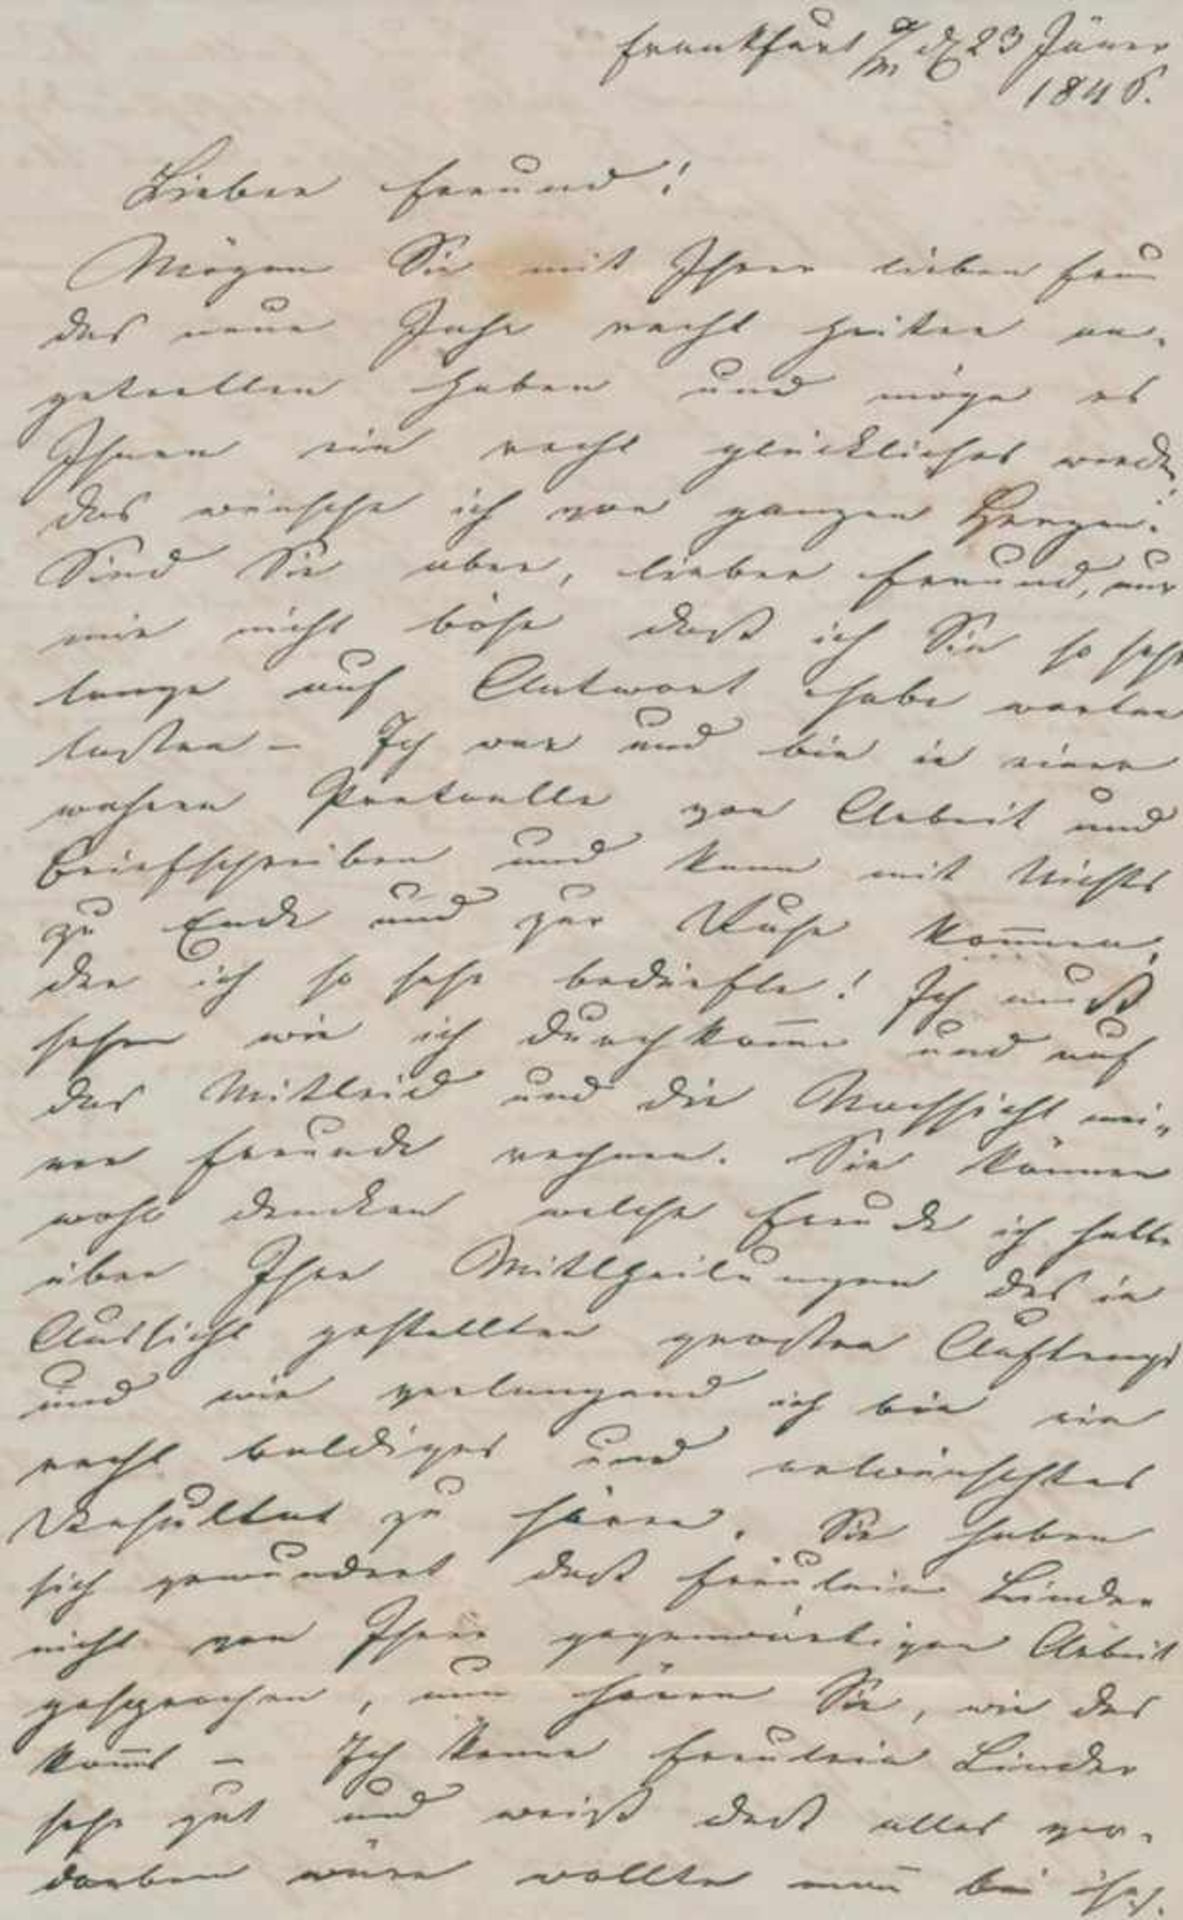 Frankfurt a/m d 23 Jäner
1846.
Lieber Freund!
Mögen Sie mit Ihrer lieben Frau
das neue Jahr recht heiter an-
getretten haben und möge es
Ihnen ein recht glückliches werden
das wünsche ich von ganzen Herzen!
Sind Sie aber, lieber Freund, nur
mir nicht böse daß ich Sie so sehr
lange auf Antwort habe warten
lassen – Ich war und bin in einer
wahren von Arbeit und
Briefschreiben und kann mit Nichts
zu Ende und zur Ruhe kommen,
der ich so sehr bedürfte! Ich muß
sehen wie ich durchkomme und auf
das Mitleid und die Nachsicht mei-
ner Freunde rechnen. Sie können
wohl denken welche Freude ich hatte
über Ihre Mittheilungen des in
Aussicht gestellten großen Auftrags
und wie verlangend ich bin ein
recht baldiges und erwünschtes
Resultat zu hören. Sie haben
sich gewundert daß Fräulein Linder
nicht von Ihrer gegenwärtigen Arbeit
gesprochen, nun hören Sie, wie das
kommt – Ich kenne Fräulein Linder
sehr gut und weiß daß alles ver-
dorben wäre wollte man bei ihr